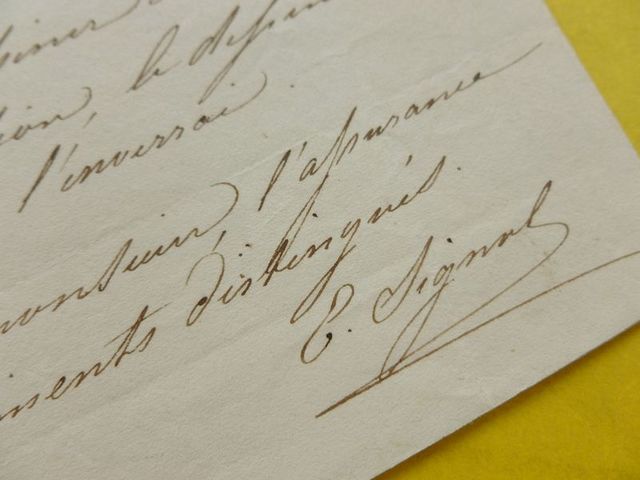 siner
ion, le dessin
l'enverrai.
monsieur, l'assurance
iments distingués.
E. Signol